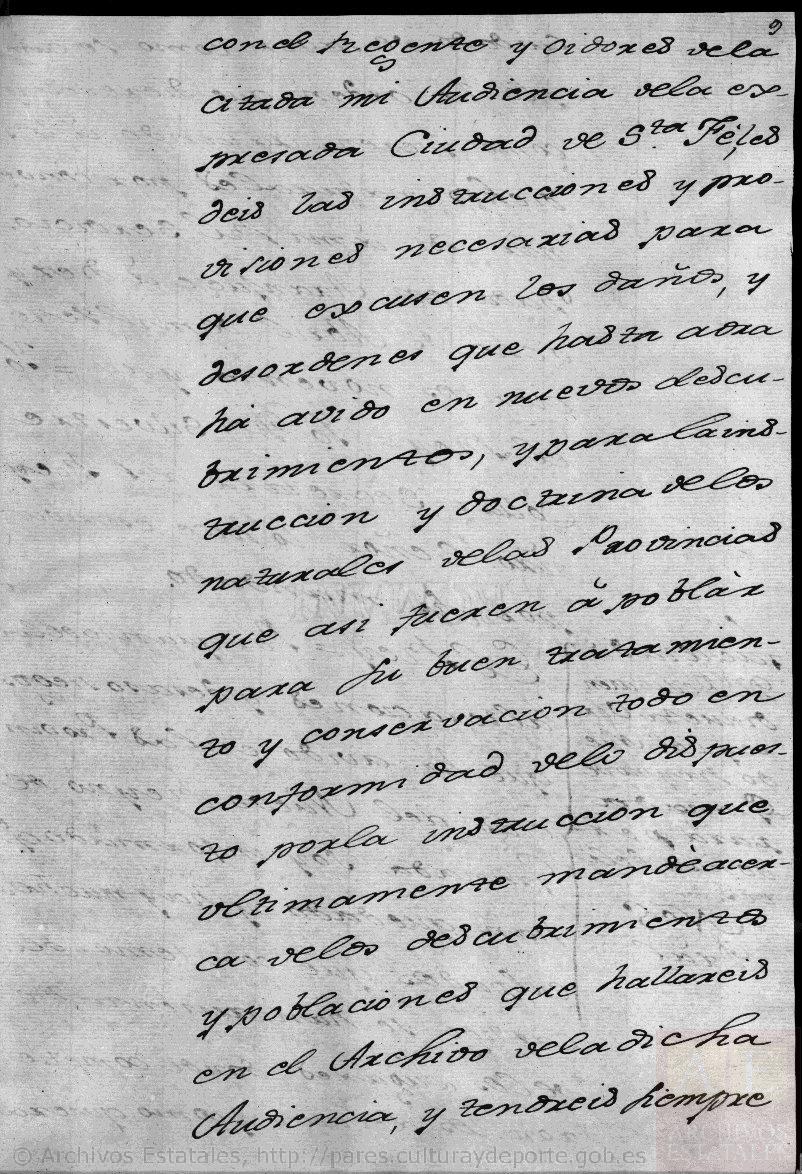 9
con el Regente y Oidores de la
citada mi Audiencia de la ex-
presada Ciudad de S.ta Fé, les
deis las instrucciones y pro-
visiones necesarias para
que excusen los daños, y
desordenes que hasta aora
ha avido en nuevos descu-
brimientos, y para la ins-
truccion y doctrina de los
naturales de las Provincias
que asi fueren à poblàr
para su buen tratamien-
to y conservacion todo en
conformidad de lo dispues-
to por la instruccion que
ultimamente mandè acer-
ca de los descubrimientos
y poblaciones que hallareis
en el Archivo de la dicha
Audiencia, y tendreis siempre
© Archivos Estatales, http://pares.culturaydeporte.gob.es
ARCHIVOS
ESTATALES